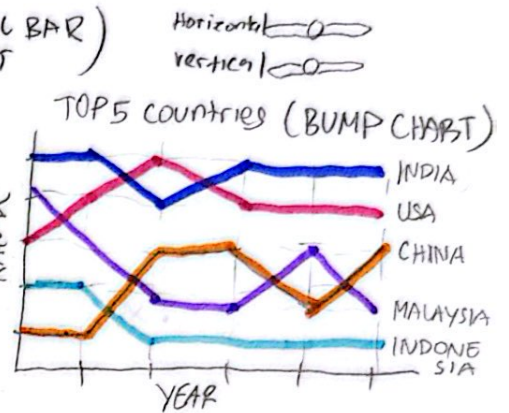 BAR
Horizontal
vertical
TOP 5 countries (BUMP CHART)
INDIA
USA
CHINA
MALAYSIA
INDONE
SIA
YEAR